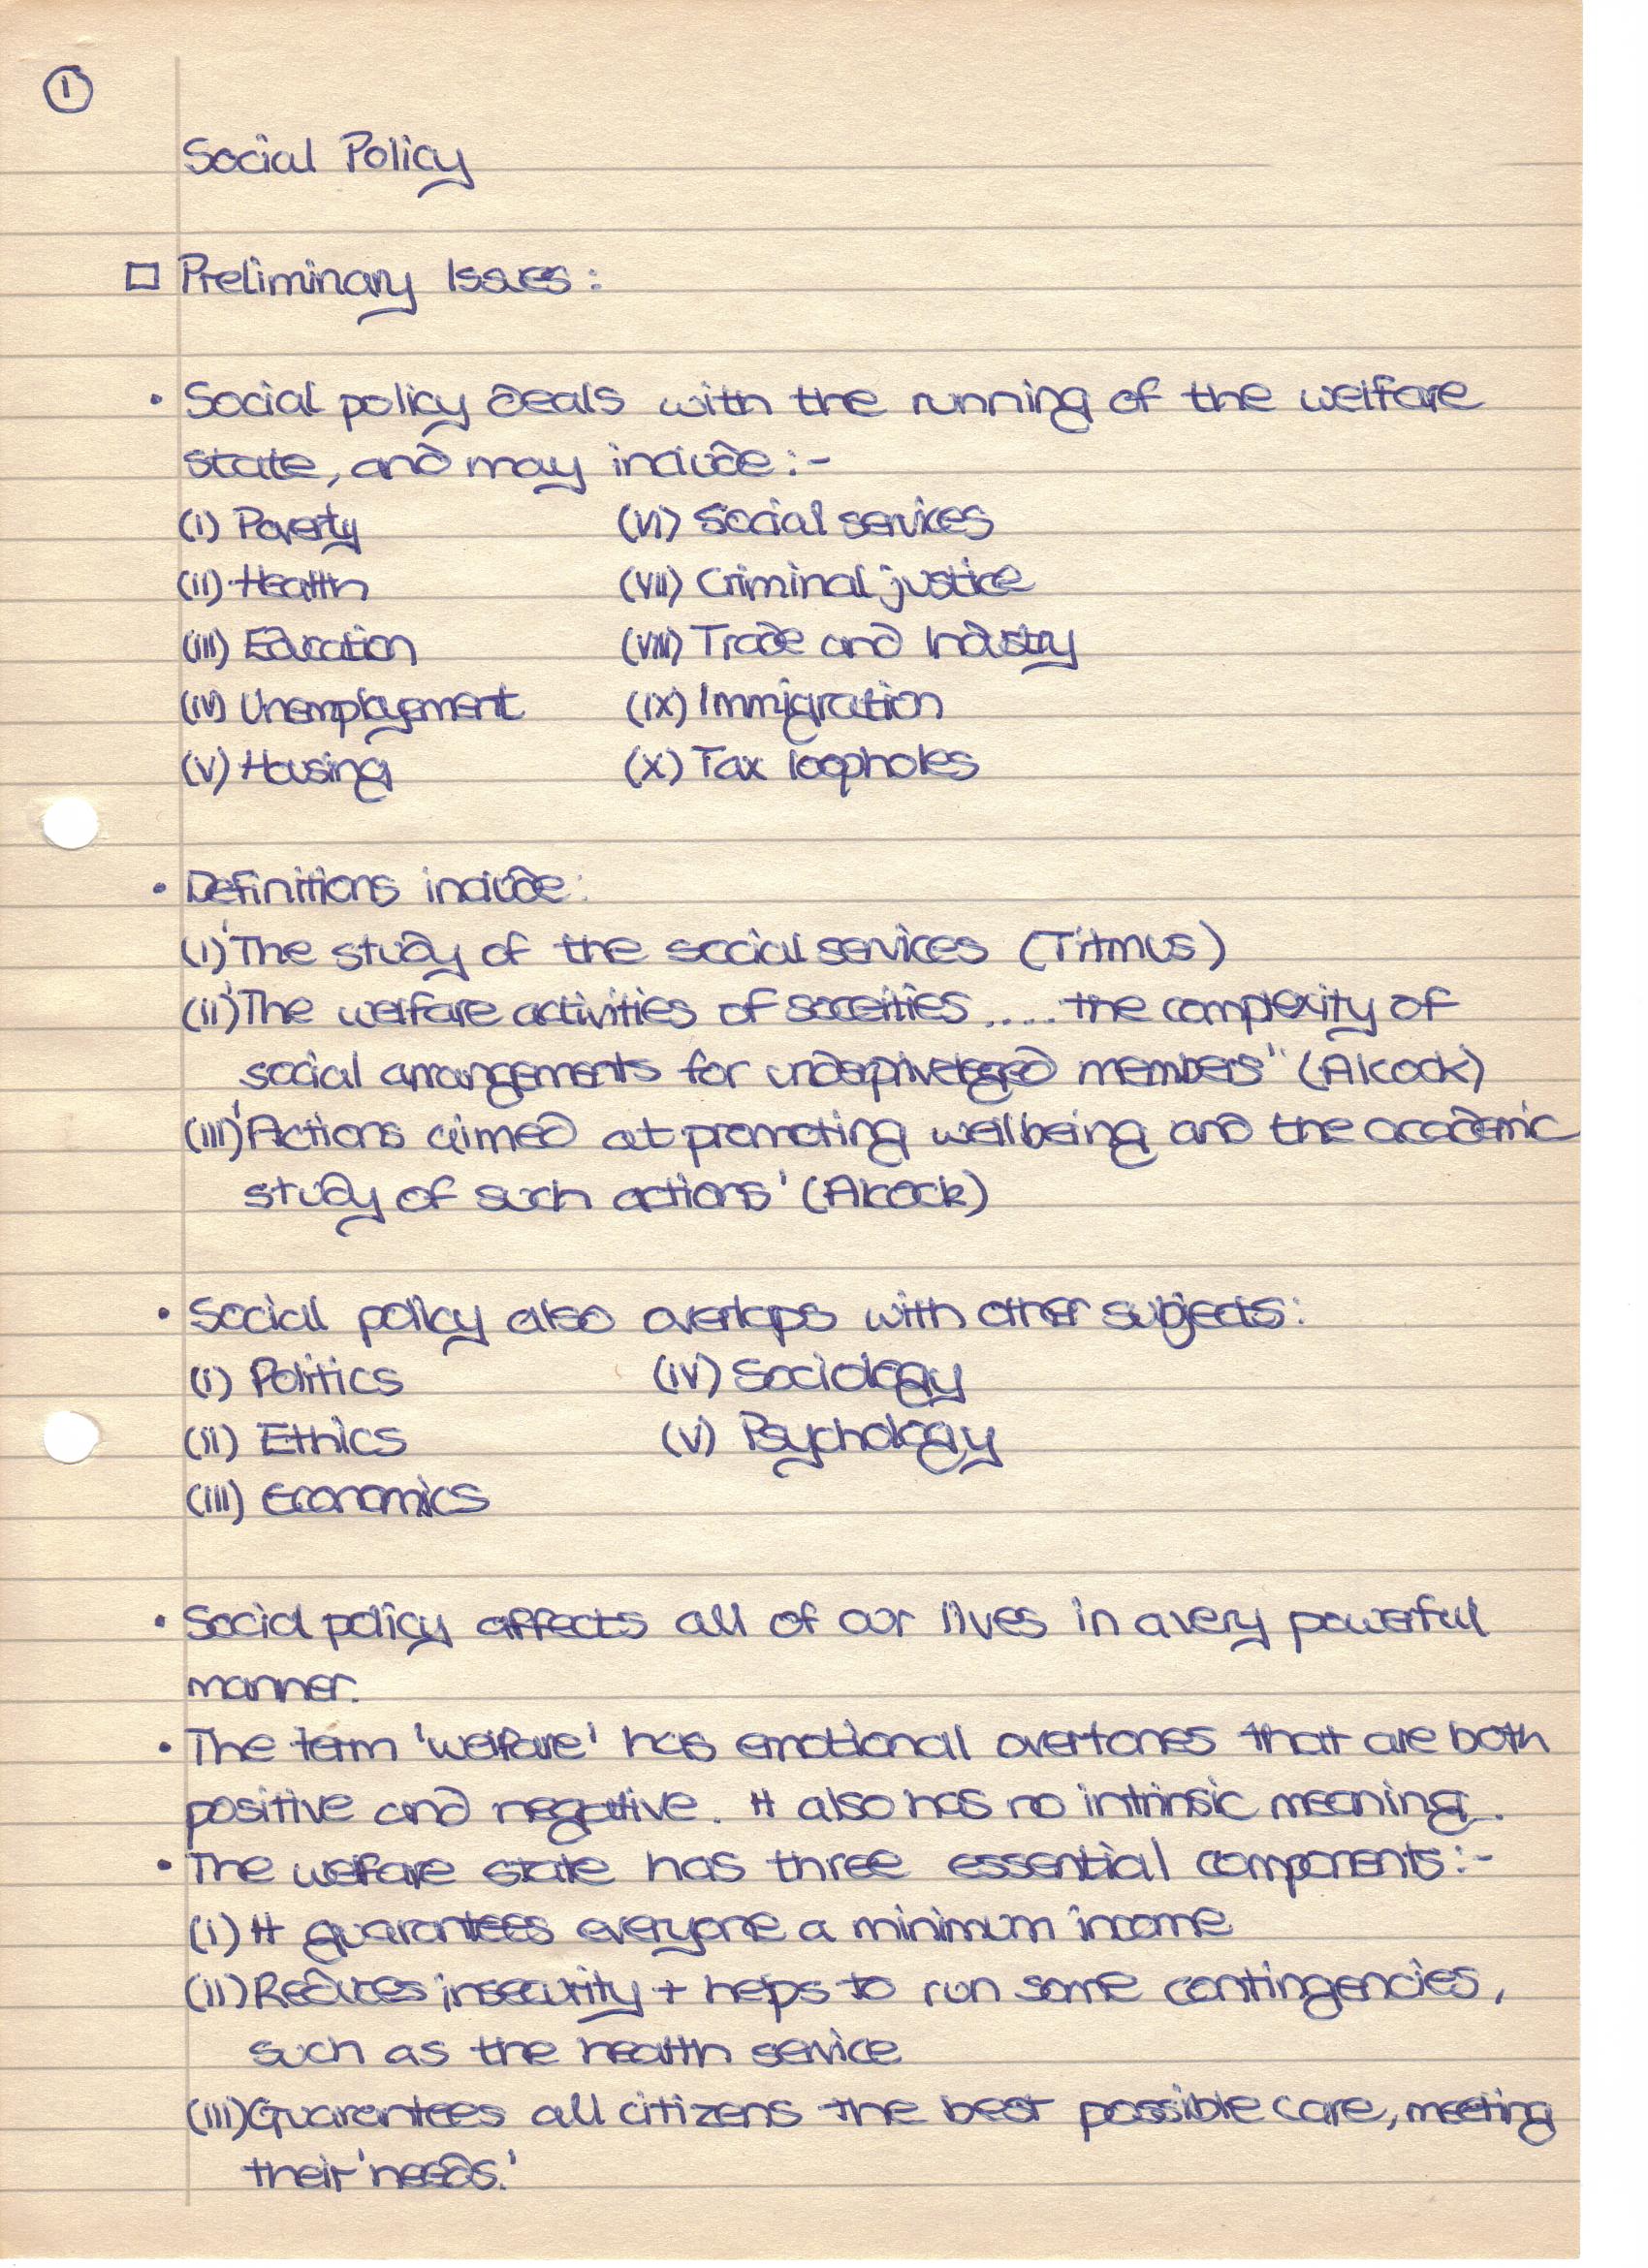 1
Social Policy
Preliminary Issues:
• Social policy deals with the running of the welfare
state, and may include:-
(i) Poverty (vi) Social services
(ii) Health (vii) Criminal justice
(iii) Education (viii) Trade and Industry
(iv) Unemployement (ix) Immigration
(v) Housing (x) Tax loopholes
• Definitions include:
(i) 'The study of the social services (Titmus)
(ii) 'The welfare activities of soceities .... the complexity of
social arrangements for members" (Alcock)
(iii) 'Actions aimed at promoting wellbeing and the academic
study of such actions' (Alcock)
• Social policy also overlaps with other subjects:
(i) Politics (iv) Sociology
(ii) Ethics (v) Psychology
(iii) Economics
• Social policy affects all of our lives in a very powerful
manner.
• The term 'welfare' has emotional overtones that are both
positive and negative. It also has no intrinsic meaning.
• The welfare state has three essential components:-
(i) It guarantees everyone a minimum income
(ii) Reduces insecurity + helps to run some contingencies,
such as the health service
(iii) Guarantees all citizens the best possible care, meeting
their 'needs.'